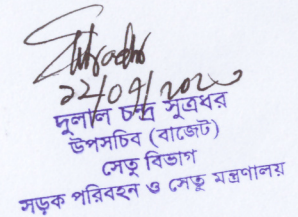 ২২/০৭/২০২০
দুলাল চন্দ্র সূত্রধর
উপসচিব (বাজেট)
সেতু বিভাগ
সড়ক পরিবহন ও সেতু মন্ত্রণালয়